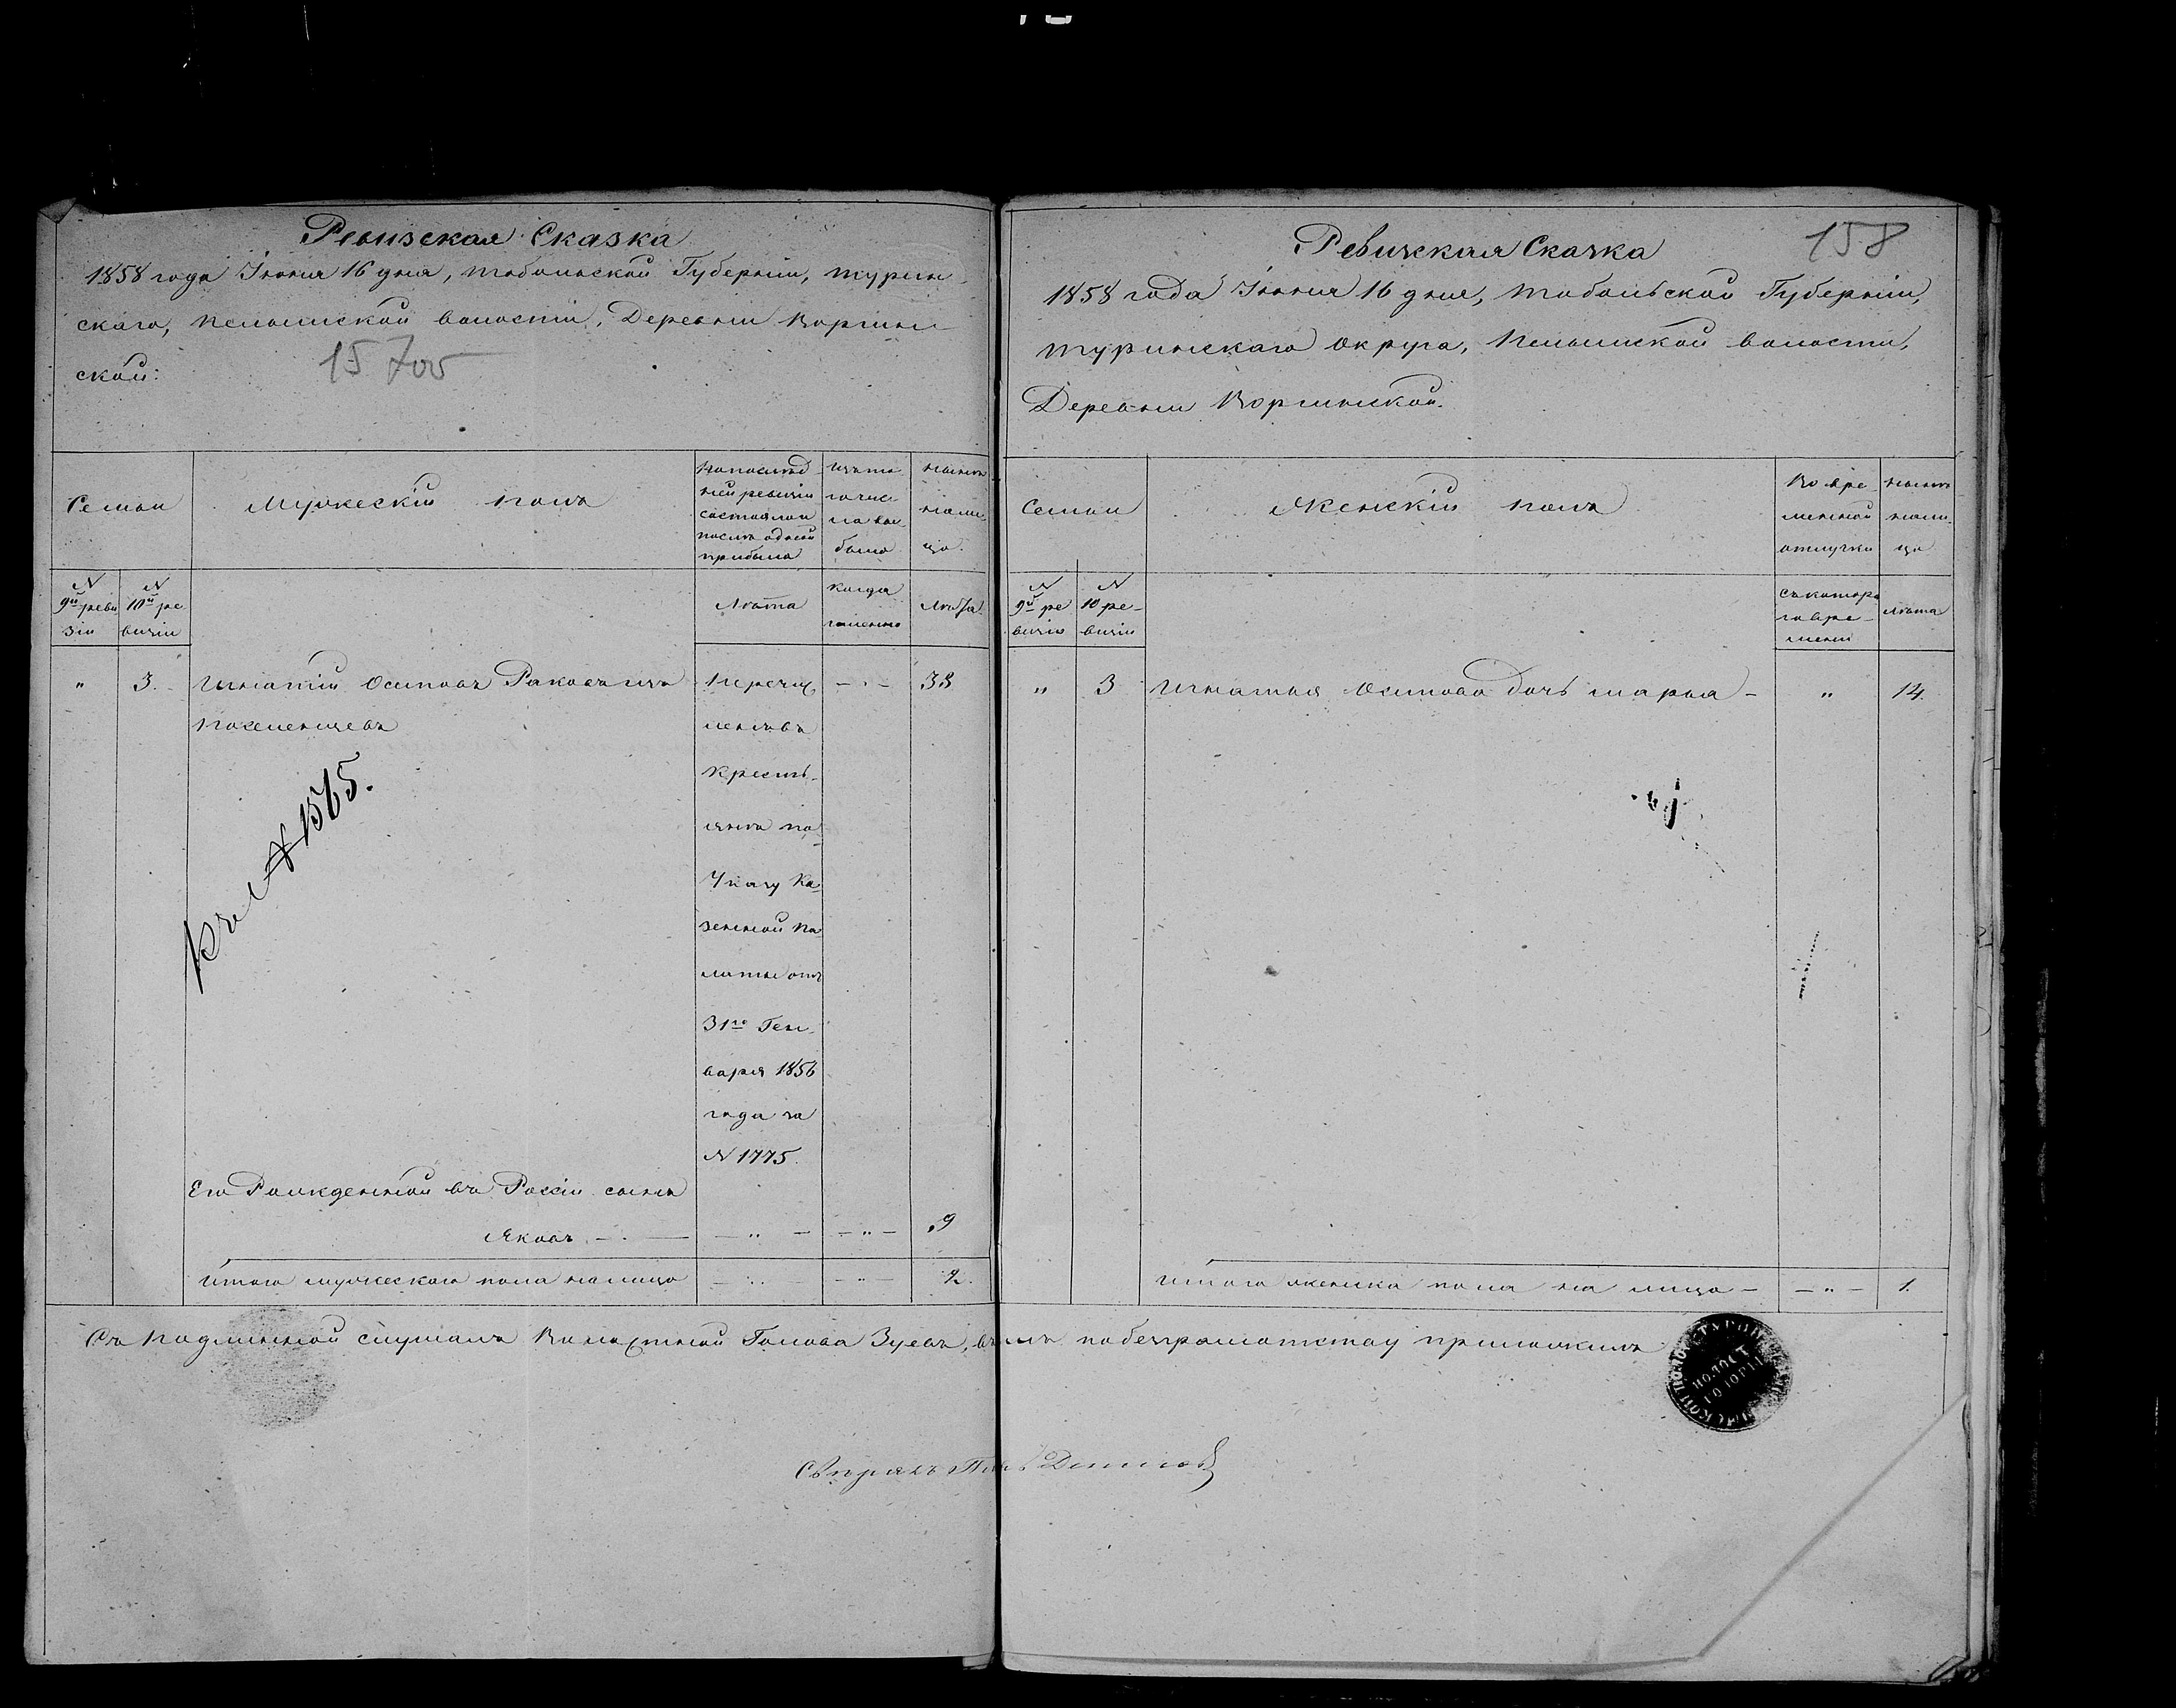 Ревизская Сказка
1858 года Іюня 16 дня, Тобольской Губерніи, Турин
скаго, Пелымской волости, Деревни Воргин
ской:
157 об
Семьи
Мужескій полъ
По послѣд
ней ревизіи
состояло и
послѣ одной
прибыло
Изъ то
го чис
ла вы
было
Нынѣ
на ли
цо.
№
9й реви
зіи
№
10й ре
визіи
Лѣта
Когда
именно
Лѣта
"
3.
Игнатій Осиповъ
Поселенцевъ
Перечис
ленъ въ
Кресть
яне по
Указу Ка
зенной Па
латы отъ
31го Ген
варя 1856
года за
№ 1775.
38
Къ № 1565.
Его Рожденной въ Россіи сынъ
Яковъ
9
Итого мужескаго пола налицо
2.
158
Ревизская Сказка
1858 года Іюня 16 дня, Тобольской Губерніи,
Туринскаго Округа, Пелымской волости,
Деревни Воргинской.
Семьи
Женскій полъ
Во вре
менной
отлучки
Нынѣ
нали
цо
№
9й ре
визіи
№
10 ре
визіи
съ котора
го вре
мени
Лѣта
"
3
Игнатья Осипова дочь Марья
"
14.
Итого женска пола на лицо
1.
Съ подлинной слушалъ Волостной Голова Зуевъ, въ мѣ по безграмотству приложилъ
Свѣрялъ